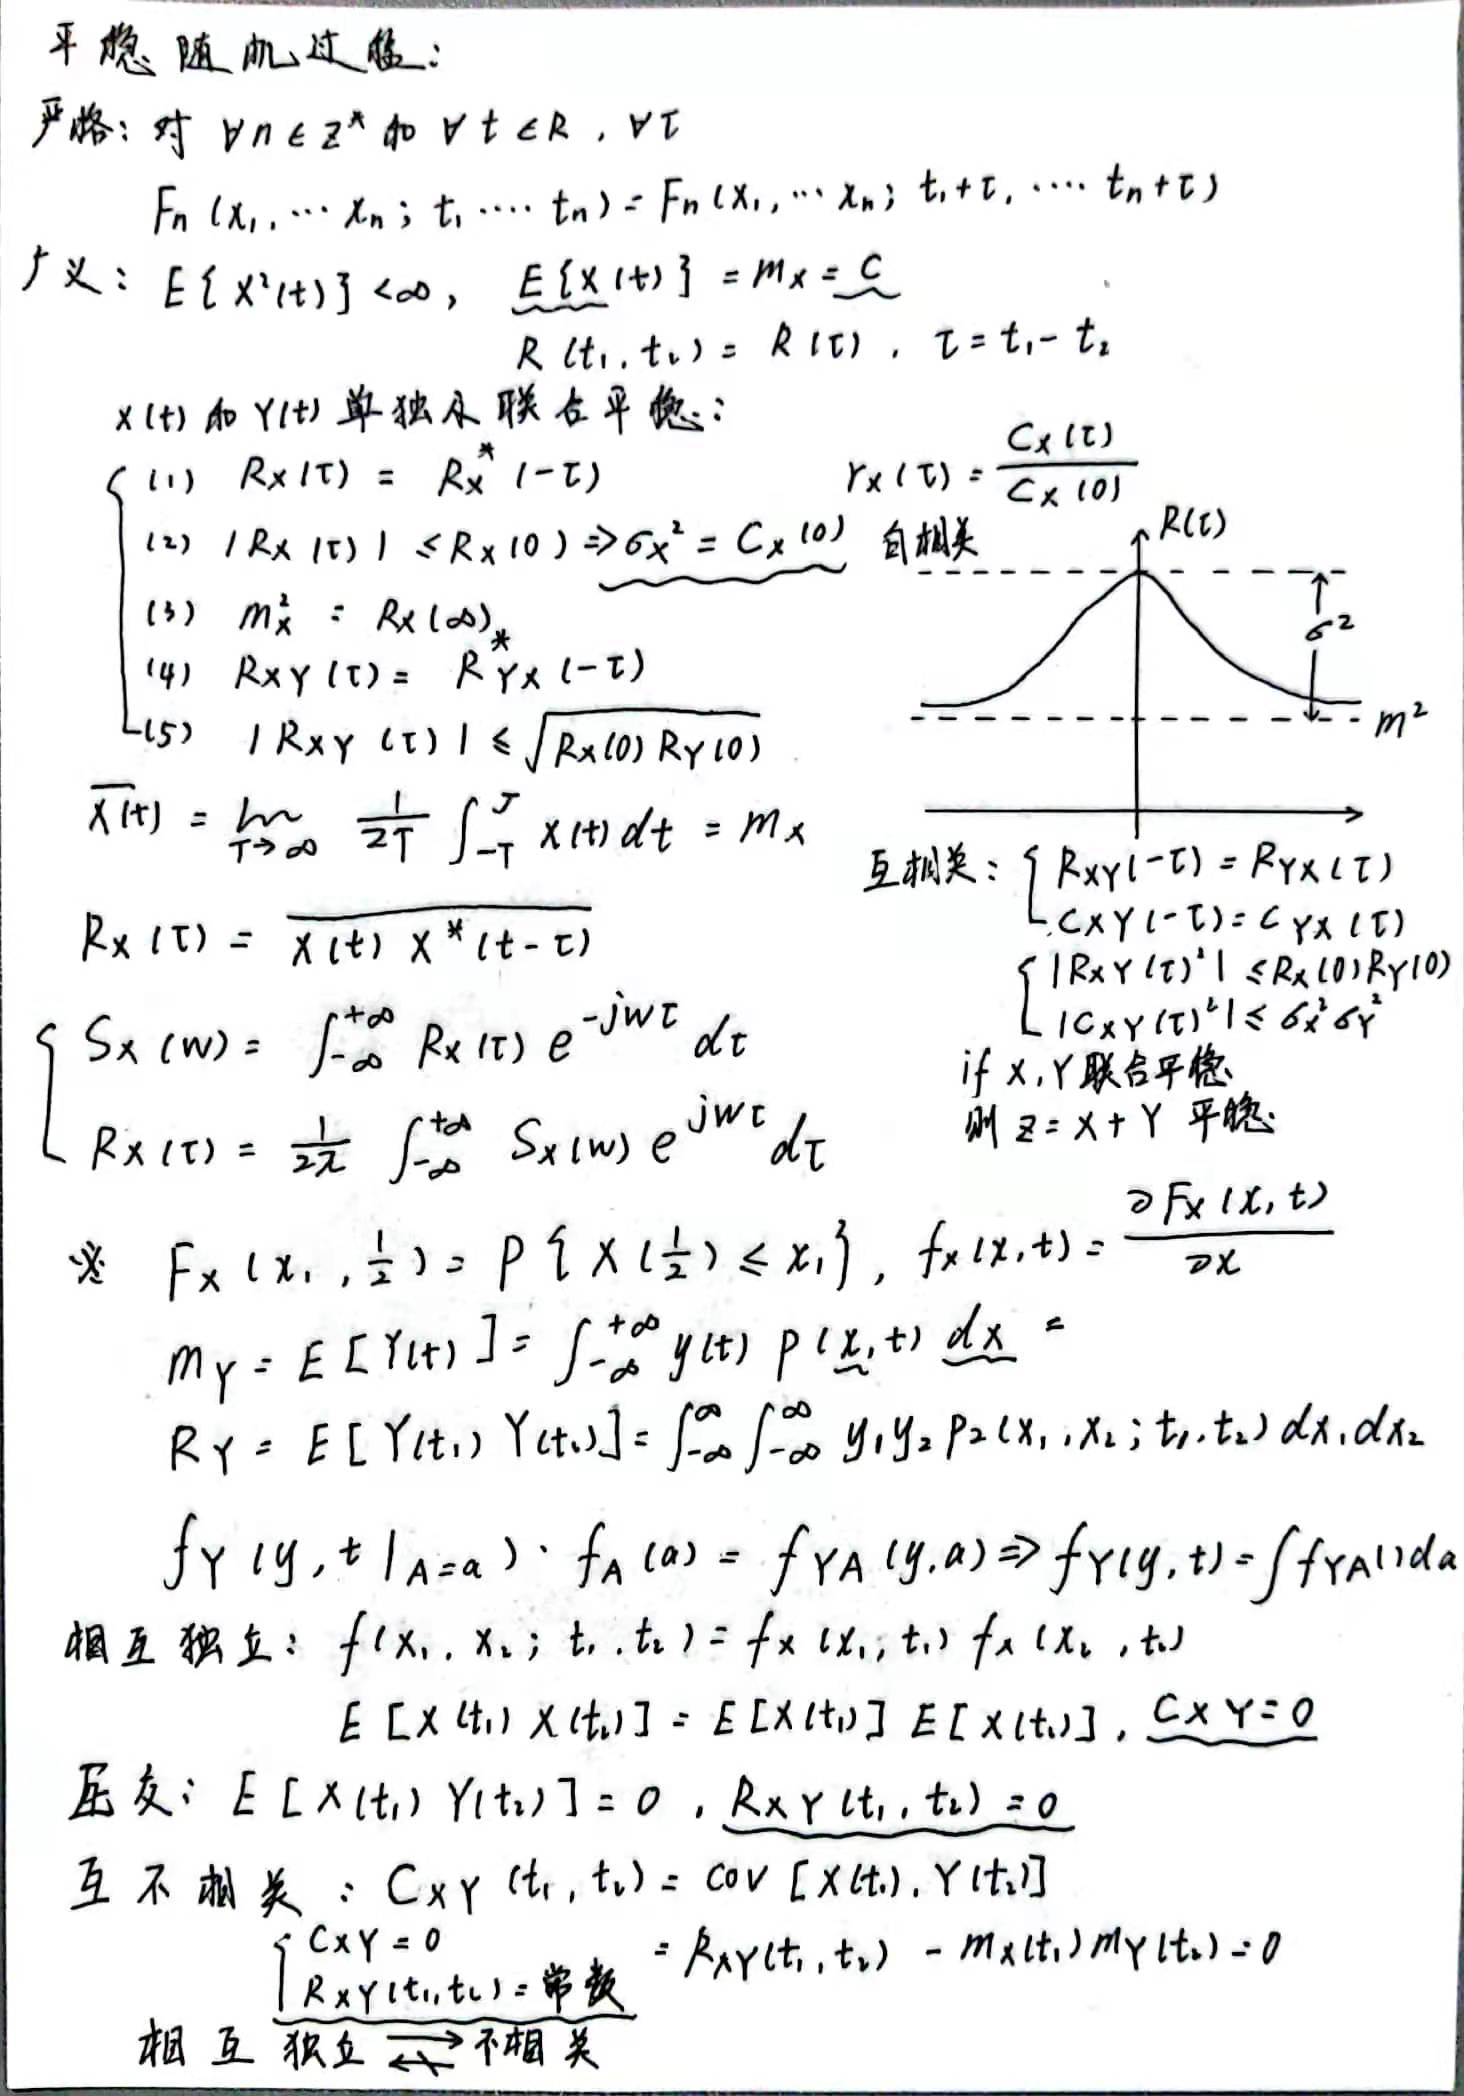 平稳随机过程:
严格: 对 ∀n∈Z* 和 ∀t∈R, ∀τ
Fn(x1,…xn; t1….tn) = Fn(x1,…xn; t1+τ,….tn+τ)
广义: E{X²(t)}<∞, E{X(t)} = mx = C
R(t1,t2) = R(τ), τ=t1-t2
X(t)和Y(t)单独及联合平稳:
(1) Rx(τ) = Rx*(-τ)
(2) |Rx(τ)| ≤ Rx(0) ⇒ σx² = Cx(0)
(3) mx² = Rx(∞)
(4) RXY(τ) = R*YX(-τ)
(5) |RXY(τ)| ≤ √(Rx(0)RY(0))
rx(τ) = Cx(τ)/Cx(0)
自相关
R(τ)
σ²
m²
X(t)‾ = lim T→∞ 1/2T ∫-T^T X(t)dt = mx
Rx(τ) = X(t)X*(t-τ)‾
互相关: RXY(-τ) = RYX(τ)
CXY(-τ) = CYX(τ)
|RXY(τ)²| ≤ Rx(0)RY(0)
|CXY(τ)²| ≤ σx²σY²
if X,Y联合平稳
则 Z=X+Y 平稳
Sx(w) = ∫-∞^+∞ Rx(τ) e^-jwτ dτ
Rx(τ) = 1/2π ∫-∞^+∞ Sx(w) e^jwτ dτ
※ Fx(x1, 1/2) = P{X(1/2) ≤ x1}, fx(x,t) = ∂Fx(x,t)/∂x
mY = E[Y(t)] = ∫-∞^+∞ y(t) p(x,t) dx =
RY = E[Y(t1)Y(t2)] = ∫-∞^∞ ∫-∞^∞ y1y2 p2(x1,x2;t1,t2)dx1dx2
fY(y,t|A=a)·fA(a) = fYA(y,a) ⇒ fY(y,t) = ∫fYA()da
相互独立: f(x1,x2; t1,t2) = fx(x1;t1) fx(x2,t2)
E[X(t1)X(t2)] = E[X(t1)]E[X(t2)], CXY=0
正交: E[X(t1)Y(t2)] = 0, RXY(t1,t2) = 0
互不相关: CXY(t1,t2) = cov[X(t1),Y(t2)]
= RXY(t1,t2) - mX(t1)mY(t2) = 0
CXY = 0
RXY(t1,t2) = 常数
相互独立 ⇄ 不相关